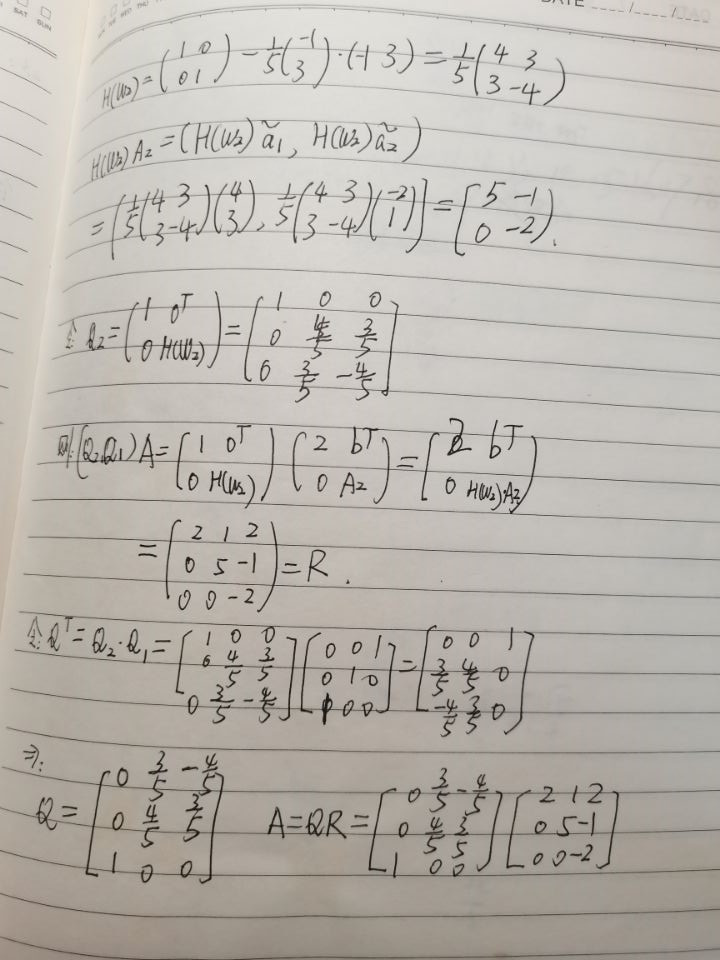 SAT SUN
MON TUE WED THU FRI SAT SUN DATE ____/____/____
H(ω₂) = (1 0; 0 1) - 1/5 (-1; 3)·(-1 3) = 1/5 (4 3; 3 -4)
H(ω₂)A₂ = (H(ω₂)ã₁, H(ω₂)ã₂)
= (1/5 (4 3; 3 -4)(4; 3), 1/5 (4 3; 3 -4)(-2; 1)] = [5 -1; 0 -2).
令: Q₂ = (1 0ᵀ; 0 H(ω₂)) = [1 0 0; 0 4/5 3/5; 0 3/5 -4/5]
则: (Q₂Q₁)A = (1 0ᵀ; 0 H(ω₂)) (2 bᵀ; 0 A₂) = (2 bᵀ; 0 H(ω₂)·A₂)
= (2 1 2; 0 5 -1; 0 0 -2) = R.
令: Qᵀ = Q₂·Q₁ = [1 0 0; 0 4/5 3/5; 0 3/5 -4/5] [0 0 1; 0 1 0; 1 0 0] = [0 0 1; 3/5 4/5 0; -4/5 3/5 0]
⇒:
Q = [0 3/5 -4/5; 0 4/5 3/5; 1 0 0] A = QR = [0 3/5 -4/5; 0 4/5 3/5; 1 0 0] [2 1 2; 0 5 -1; 0 0 -2]